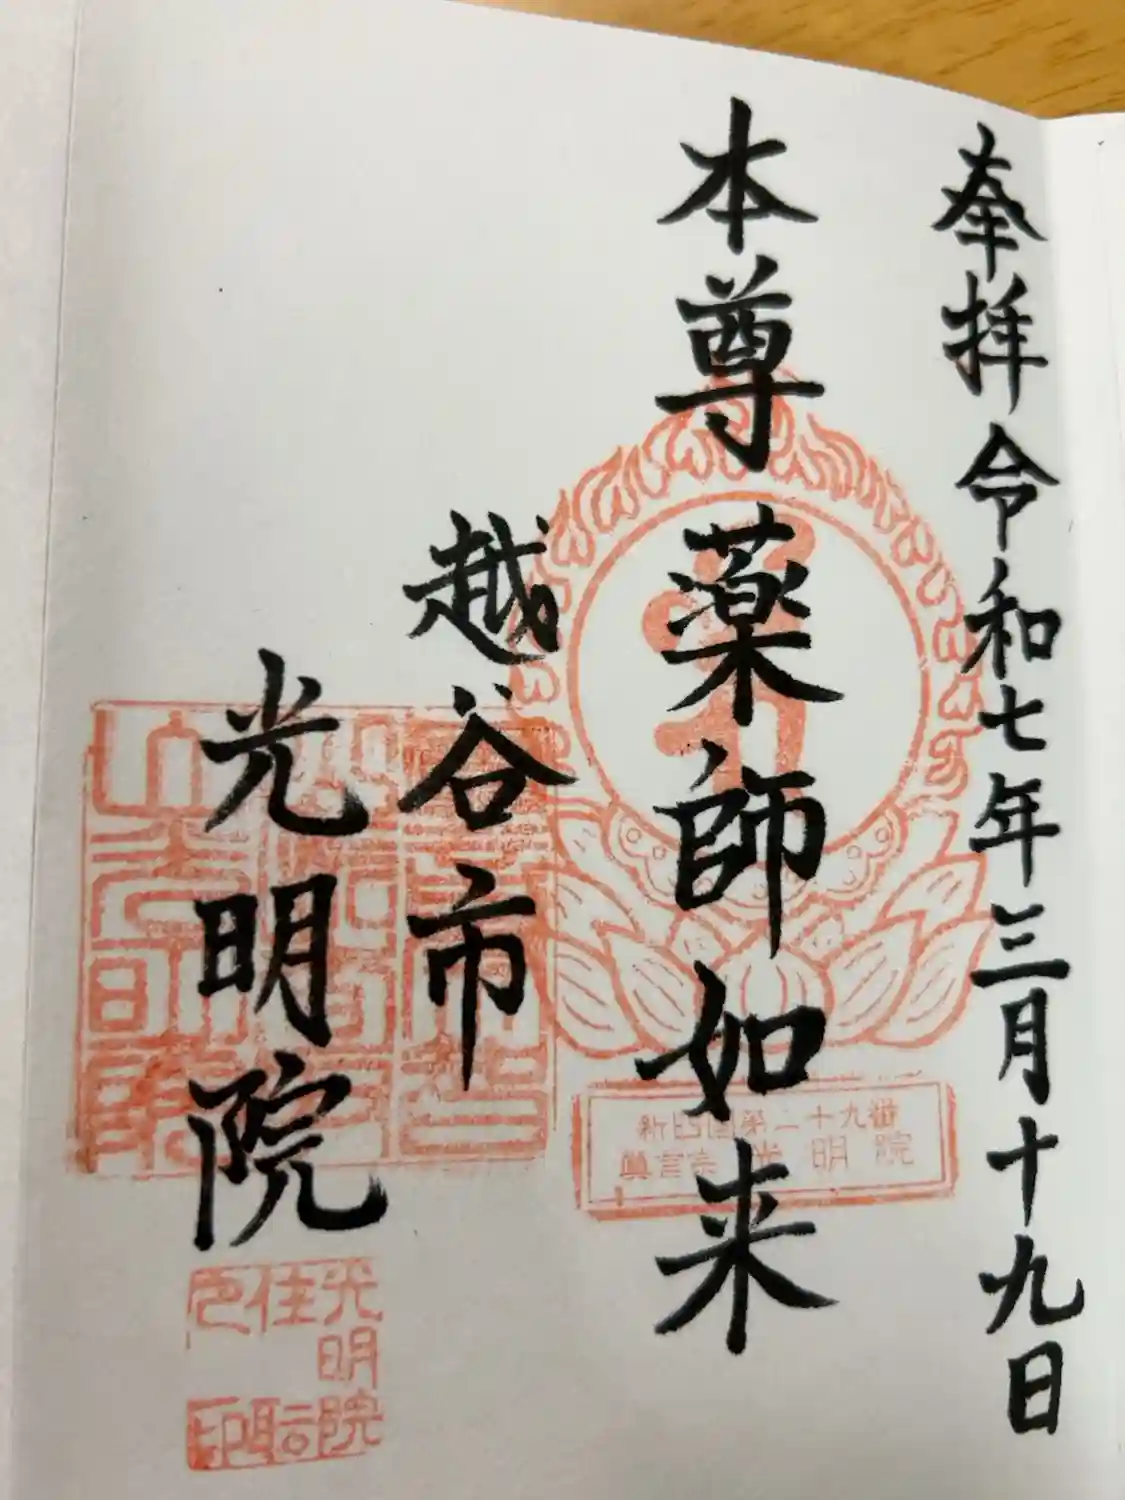 奉拝 令和七年三月十九日
本尊 薬師如来
越谷市
光明院
新四国第二十九番
眞言宗 光明院
光明院
住職
之印